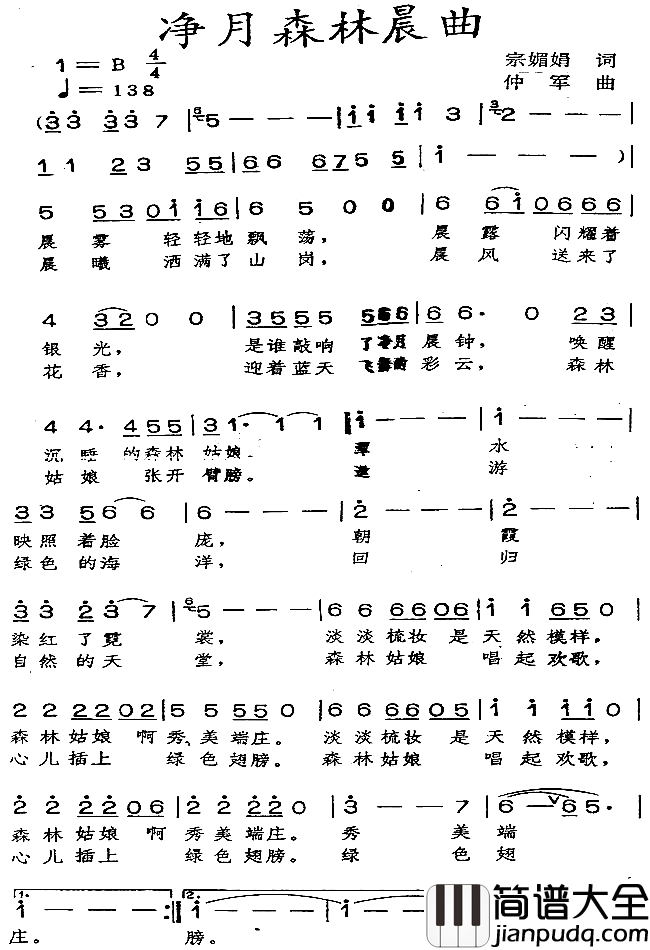 净月森林晨曲
1=B 4/4
♩=138
宗媚娟 词
仲军 曲
(3̇3̇ 3̇3̇ 7 |5 - - - |1̇1̇ 1̇1̇ 1̇ 3 |2 - - - |
11 23 55 |66 675 5 |1̇ - - ) |
5 530 1̇1̇6 |6 5 0 0 |6 61̇0 666 |
晨雾 轻轻地飘荡， 晨露 闪耀着
晨曦 洒满了山岗， 晨风 送来了
4 320 0 |3555 566 |66· 0 23 |
银光， 是谁敲响了净月晨钟， 唤醒
花香， 迎着蓝天 彩云， 森林
4 4· 455 |31· 1 1 |1̇ - - |1̇ - - |
沉睡 的森林 姑娘。 水
姑娘 张开臂膀。 遨 游
33 56 6 |6 - - - |2̇ - - - |2̇ - - |
映照着脸 庞， 朝 霞
绿色的海 洋， 回 归
3̇3̇ 2̇3̇ 7 |5 - - - |66 6606 |1̇1̇ 650 |
染红了霓 裳， 淡淡梳妆 是天然模样，
自然的天 堂， 森林姑娘 唱起欢歌，
22 2202 |55 550 |66 6605 |1̇ 1̇ 1̇1̇0 |
森林姑娘 啊秀美端庄。 淡淡梳妆 是天然模样，
心儿插上 绿色翅膀。 森林姑娘 唱起欢歌，
2̇2̇ 2̇2̇06 |2̇2̇ 2̇2̇0 |3̇ - - 7 |6 - 65· |
森林姑娘 啊秀美端庄。 秀 美 端
心儿插上 绿色翅膀。 绿 色 翅
1. 2.
1̇ - - - :|1̇ - - - |
庄。 膀。
简谱大全
jianpudq.com